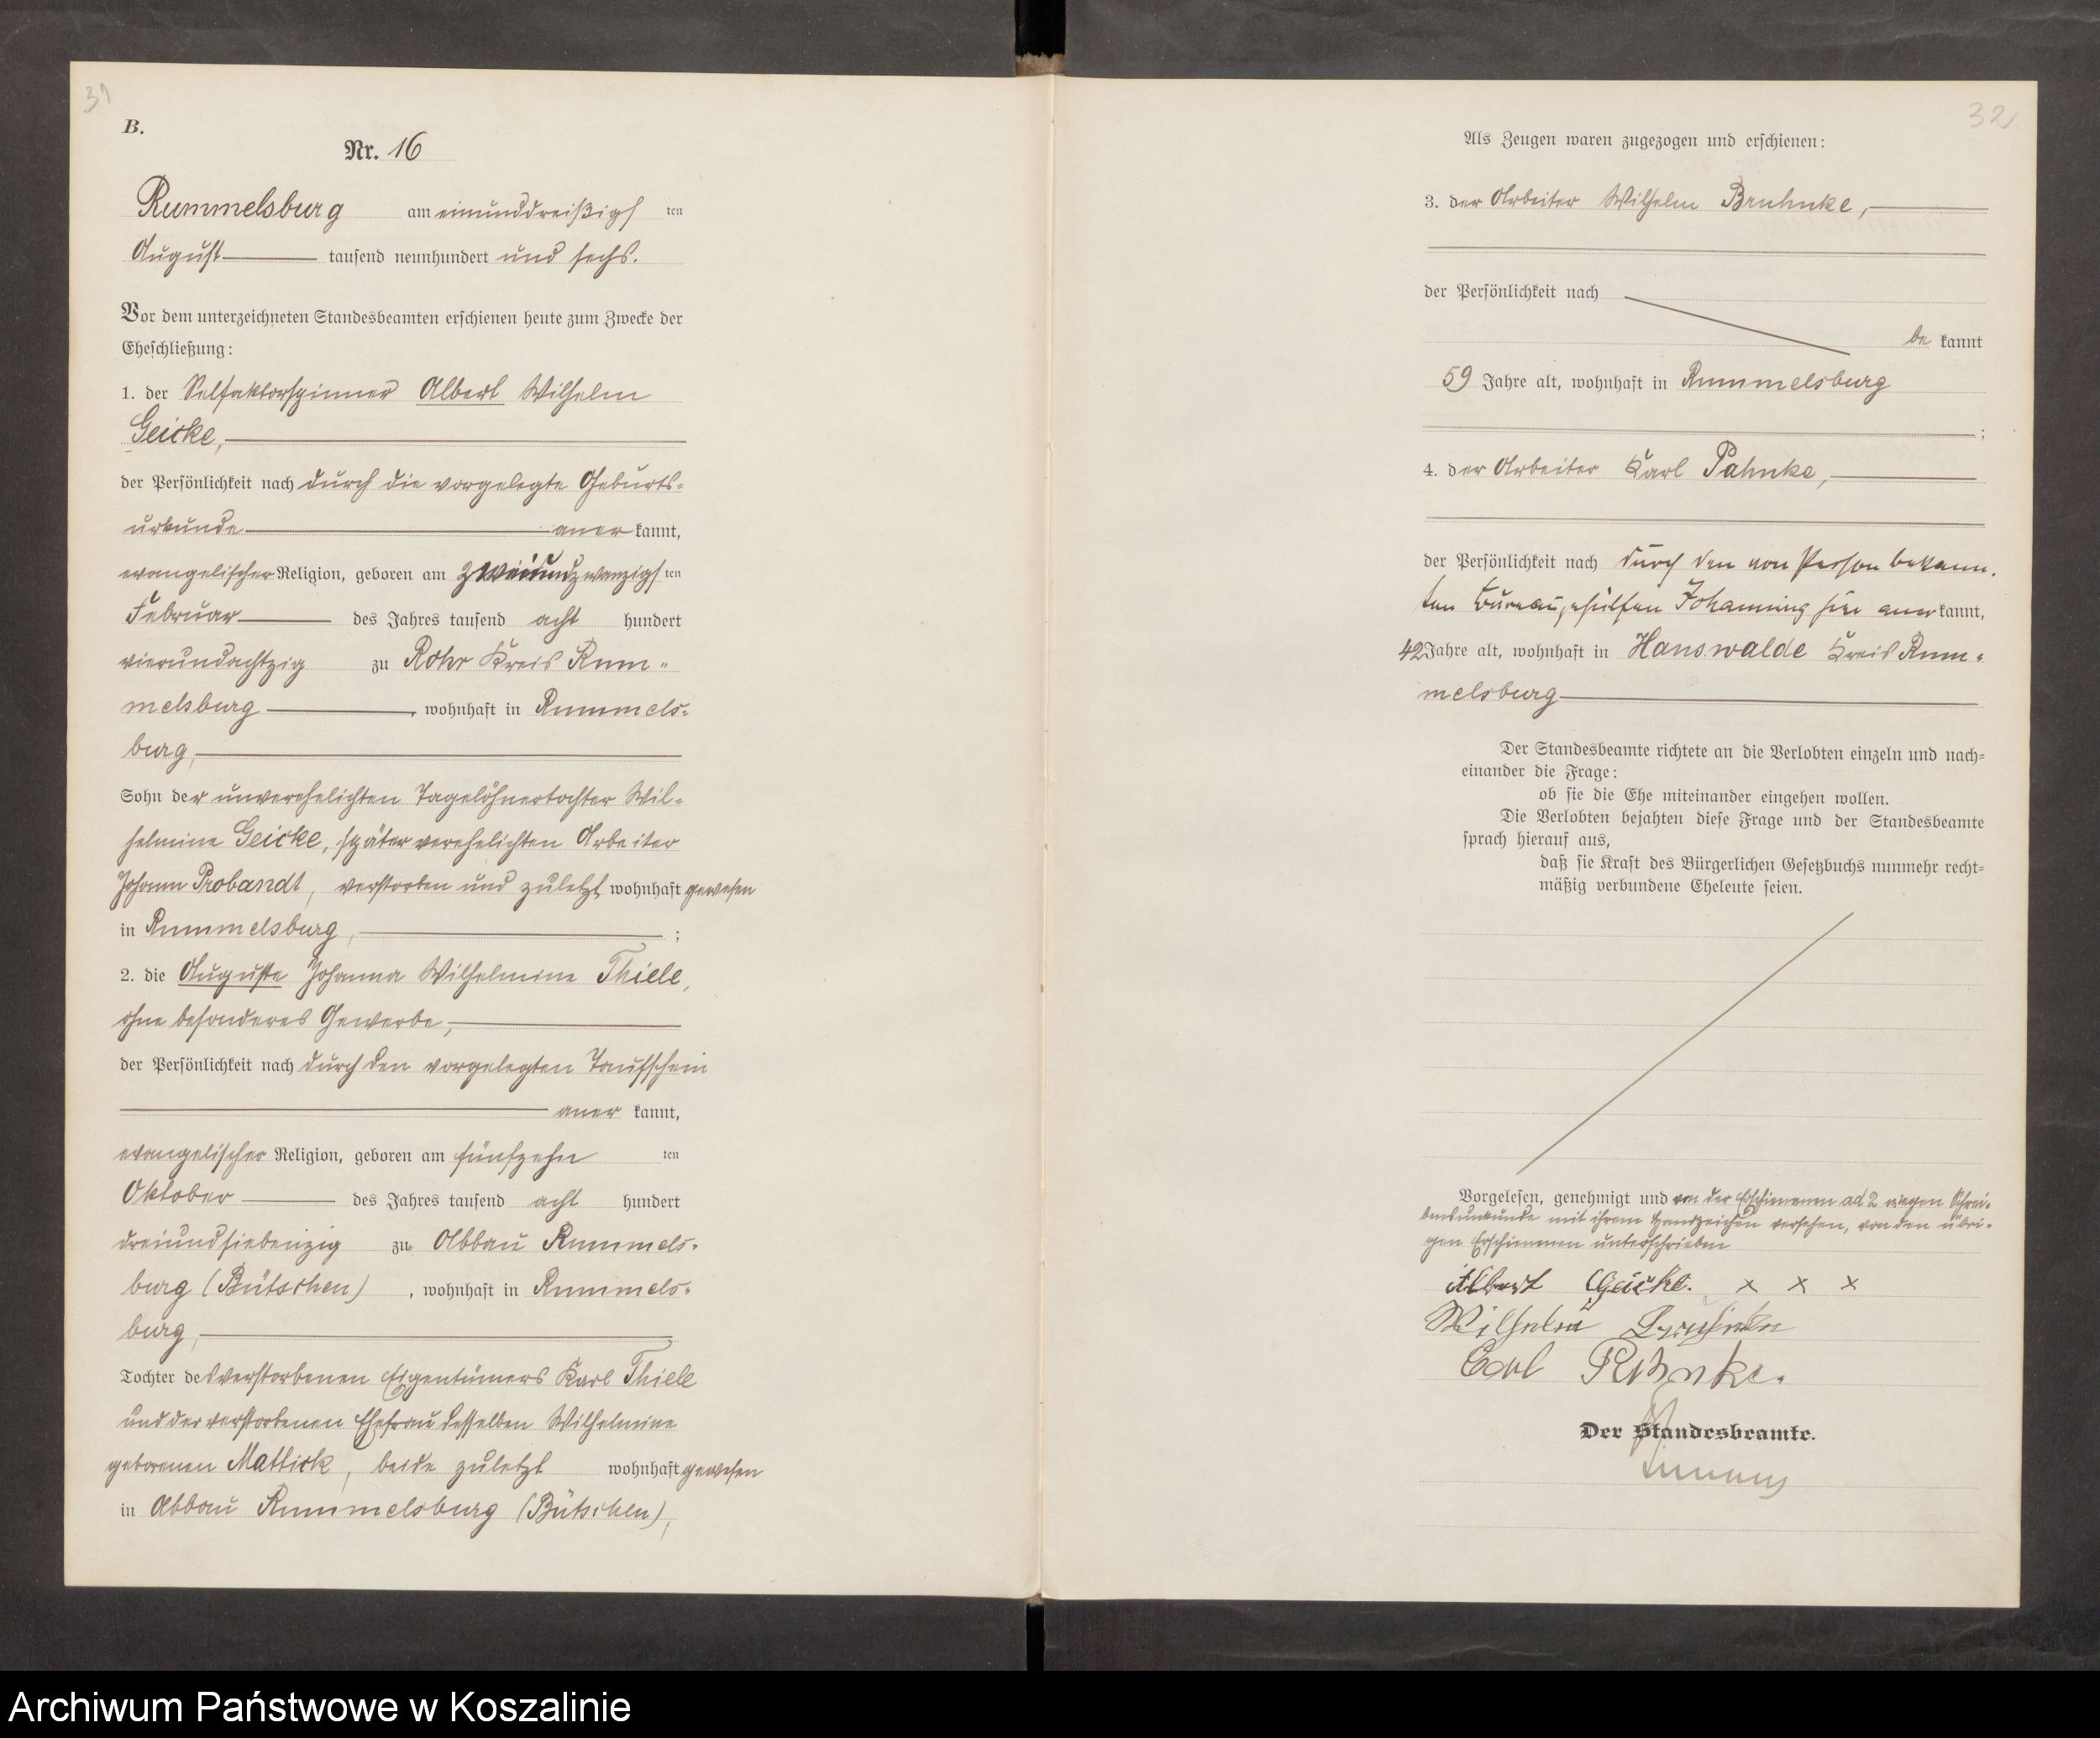 31
B.
Nr. 16
Rummelsburg am einunddreißigsten
August tausend neunhundert und sechs.
Vor dem unterzeichneten Standesbeamten erschienen heute zum Zwecke der
Eheschließung:
1. der Selfaktorspinner Albert Wilhelm
Geicke,
der Persönlichkeit nach durch die vorgelegte Geburts-
urkunde anerkannt,
evangelischer Religion, geboren am zweiundzwanzigsten
Februar des Jahres tausend acht hundert
vierundachtzig zu Rohr Kreis Rum-
melsburg, wohnhaft in Rummels-
burg,
Sohn der unverehelichten Tagelöhnertochter Wil-
helmine Geicke, später verehelichten Arbeiter
Johann Probandt, verstorben und zuletzt wohnhaft gewesen
in Rummelsburg, ;
2. die Auguste Johanna Wilhelmine Thiele,
ohne besonderes Gewerbe,
der Persönlichkeit nach durch den vorgelegten Taufschein
anerkannt,
evangelischer Religion, geboren am fünfzehnten
Oktober des Jahres tausend acht hundert
dreiundsiebenzig zu Abbau Rummels-
burg (Bütschen), wohnhaft in Rummels-
burg,
Tochter des verstorbenen Eigentümers Karl Thiele
und der verstorbenen Ehefrau desselben Wilhelmine
geborenen Mattick, beide zuletzt wohnhaft gewesen
in Abbau Rummelsburg (Bütschen),
32
Als Zeugen waren zugezogen und erschienen:
3. der Arbeiter Wilhelm Bruhnke,
der Persönlichkeit nach
bekannt
59 Jahre alt, wohnhaft in Rummelsburg
;
4. der Arbeiter Karl Pahnke,
der Persönlichkeit nach durch den von Person bekann-
ten Bureaugehülfen Johanning hier anerkannt,
42 Jahre alt, wohnhaft in Hanswalde Kreis Rum-
melsburg
Der Standesbeamte richtete an die Verlobten einzeln und nach-
einander die Frage:
ob sie die Ehe miteinander eingehen wollen.
Die Verlobten bejahten diese Frage und der Standesbeamte
sprach hierauf aus,
daß sie Kraft des Bürgerlichen Gesetzbuchs nunmehr recht-
mäßig verbundene Eheleute seien.
Vorgelesen, genehmigt und von der Erschienenen ad 2 wegen Schrei-
bensunkunde mit ihrem Handzeichen versehen, von den übri-
gen Erschienenen unterschrieben
Albert Geicke. x x x
Wilhelm Bruhnke
Carl Pahnke.
Der Standesbeamte.
Archiwum Państwowe w Koszalinie